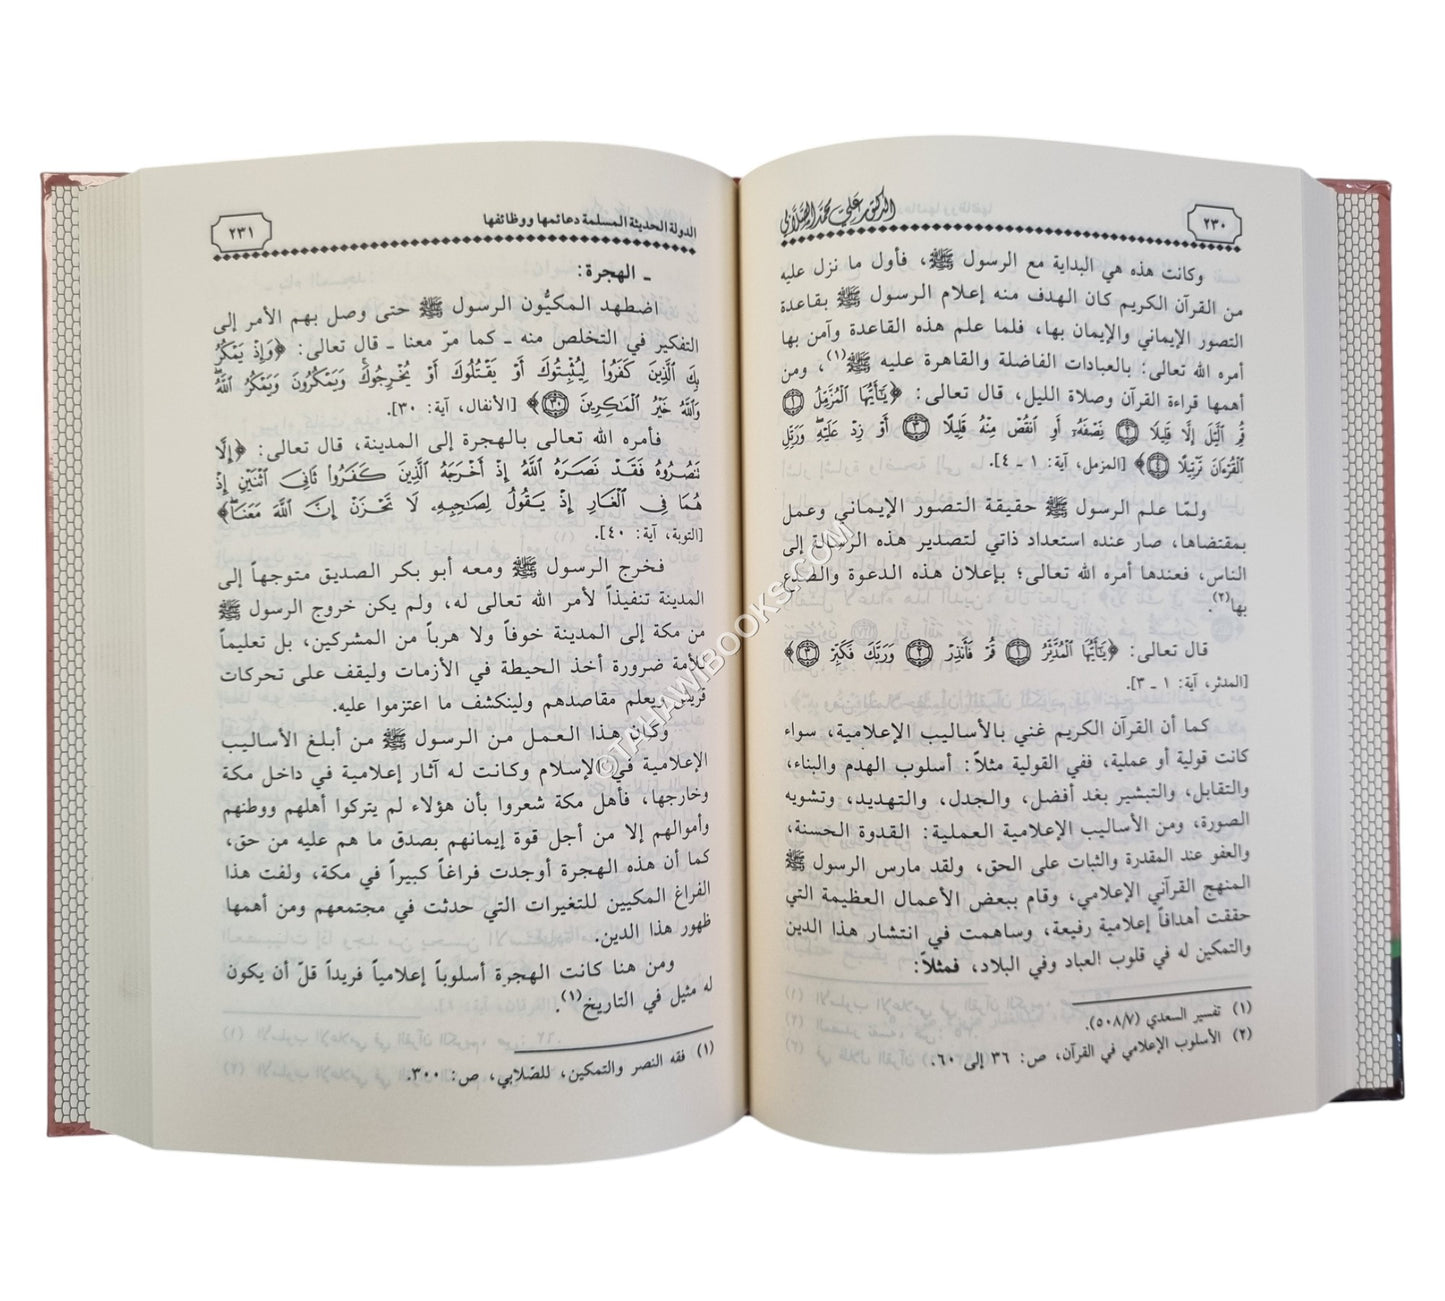 ٢٣٠
الدكتور علي محمد الصلابي
وكانت هذه هي البداية مع الرسول ﷺ، فأول ما نزل عليه
من القرآن الكريم كان الهدف منه إعلام الرسول ﷺ بقاعدة
التصور الإيماني والإيمان بها، فلما علم هذه القاعدة وآمن بها
أمره الله تعالى؛ بالعبادات الفاضلة والقاهرة عليه ﷺ(١)، ومن
أهمها قراءة القرآن وصلاة الليل، قال تعالى: ﴿يَٰٓأَيُّهَا ٱلۡمُزَّمِّلُ ١
قُمِ ٱلَّيۡلَ إِلَّا قَلِيلٗا ٢ نِّصۡفَهُۥٓ أَوِ ٱنقُصۡ مِنۡهُ قَلِيلًا ٣ أَوۡ زِدۡ عَلَيۡهِ وَرَتِّلِ
ٱلۡقُرۡءَانَ تَرۡتِيلًا ٤﴾ [المزمل، آية: ١ ـ ٤].
ولمّا علم الرسول ﷺ حقيقة التصور الإيماني وعمل
بمقتضاها، صار عنده استعداد ذاتي لتصدير هذه الرسالة إلى
الناس، فعندها أمره الله تعالى؛ بإعلان هذه الدعوة والصدع
بها(٢).
قال تعالى: ﴿يَٰٓأَيُّهَا ٱلۡمُدَّثِّرُ ١ قُمۡ فَأَنذِرۡ ٢ وَرَبَّكَ فَكَبِّرۡ ٣﴾
[المدثر، آية: ١ ـ ٣].
كما أن القرآن الكريم غني بالأساليب الإعلامية، سواء
كانت قولية أو عملية، ففي القولية مثلاً: أسلوب الهدم والبناء،
والتقابل، والتبشير بغد أفضل، والجدل، والتهديد، وتشويه
الصورة، ومن الأساليب الإعلامية العملية: القدوة الحسنة،
والعفو عند المقدرة والثبات على الحق، ولقد مارس الرسول ﷺ
المنهج القرآني الإعلامي، وقام ببعض الأعمال العظيمة التي
حققت أهدافاً إعلامية رفيعة، وساهمت في انتشار هذا الدين
والتمكين له في قلوب العباد وفي البلاد، فمثلاً:
(١) تفسير السعدي (٥٠٨/٧).
(٢) الأسلوب الإعلامي في القرآن، ص: ٣٦ إلى ٦٠.
الدولة الحديثة المسلمة دعائمها ووظائفها
٢٣١
ـ الهجرة:
اضطهد المكيُّون الرسول ﷺ حتى وصل بهم الأمر إلى
التفكير في التخلص منه ـ كما مرّ معنا ـ قال تعالى: ﴿وَإِذۡ يَمۡكُرُ
بِكَ ٱلَّذِينَ كَفَرُواْ لِيُثۡبِتُوكَ أَوۡ يَقۡتُلُوكَ أَوۡ يُخۡرِجُوكَۚ وَيَمۡكُرُونَ وَيَمۡكُرُ ٱللَّهُۖ
وَٱللَّهُ خَيۡرُ ٱلۡمَٰكِرِينَ ٣٠﴾ [الأنفال، آية: ٣٠].
فأمره الله تعالى بالهجرة إلى المدينة، قال تعالى: ﴿إِلَّا
تَنصُرُوهُ فَقَدۡ نَصَرَهُ ٱللَّهُ إِذۡ أَخۡرَجَهُ ٱلَّذِينَ كَفَرُواْ ثَانِيَ ٱثۡنَيۡنِ إِذۡ
هُمَا فِي ٱلۡغَارِ إِذۡ يَقُولُ لِصَٰحِبِهِۦ لَا تَحۡزَنۡ إِنَّ ٱللَّهَ مَعَنَاۖ﴾
[التوبة، آية: ٤٠].
فخرج الرسول ﷺ ومعه أبو بكر الصديق متوجهاً إلى
المدينة تنفيذاً لأمر الله تعالى له، ولم يكن خروج الرسول ﷺ
من مكة إلى المدينة خوفاً ولا هرباً من المشركين، بل تعليماً
للأمة ضرورة أخذ الحيطة في الأزمات وليقف على تحركات
قريش ويعلم مقاصدهم ولينكشف ما اعتزموا عليه.
وكان هذا العمل من الرسول ﷺ من أبلغ الأساليب
الإعلامية في الإسلام وكانت له آثار إعلامية في داخل مكة
وخارجها، فأهل مكة شعروا بأن هؤلاء لم يتركوا أهلهم ووطنهم
وأموالهم إلا من أجل قوة إيمانهم بصدق ما هم عليه من حق،
كما أن هذه الهجرة أوجدت فراغاً كبيراً في مكة، ولفت هذا
الفراغ المكيين للتغيرات التي حدثت في مجتمعهم ومن أهمها
ظهور هذا الدين.
ومن هنا كانت الهجرة أسلوباً إعلامياً فريداً قلّ أن يكون
له مثيل في التاريخ(١).
(١) فقه النصر والتمكين، للصّلابي، ص: ٣٠٠.
©TAHAWIBOOKS.COM